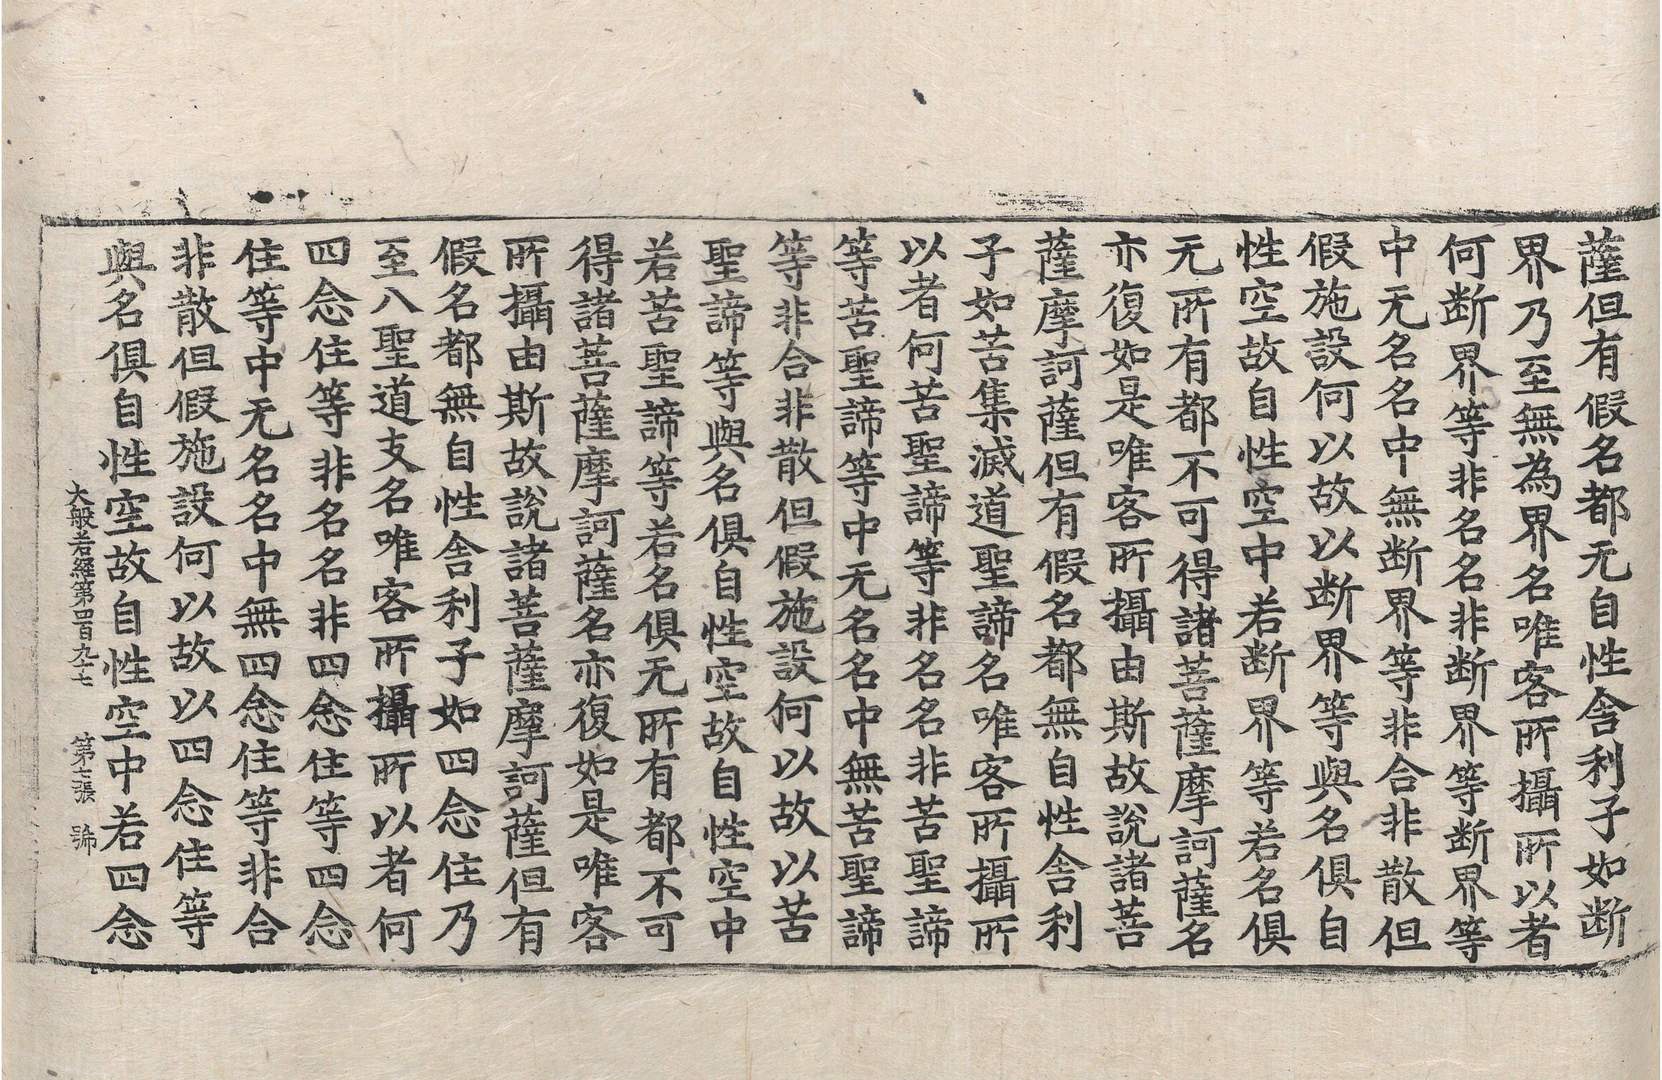 薩但有假名都无自性舍利子如断
界乃至無為界名唯客所攝所以者
何断界等非名名非断界等断界等
中无名名中無断界等非合非散但
假施設何以故以断界等與名俱自
性空故自性空中若断界等若名俱
无所有都不可得諸菩薩摩訶薩名
亦復如是唯客所攝由斯故說諸菩
薩摩訶薩但有假名都無自性舍利
子如苦集滅道聖諦名唯客所攝所
以者何苦聖諦等非名名非苦聖諦
等苦聖諦等中无名名中無苦聖諦
等非合非散但假施設何以故以苦
聖諦等與名俱自性空故自性空中
若苦聖諦等若名俱无所有都不可
得諸菩薩摩訶薩名亦復如是唯客
所攝由斯故說諸菩薩摩訶薩但有
假名都無自性舍利子如四念住乃
至八聖道支名唯客所攝所以者何
四念住等非名名非四念住等四念
住等中无名名中無四念住等非合
非散但假施設何以故以四念住等
與名俱自性空故自性空中若四念
大般若経第四百九十七 第七張 號